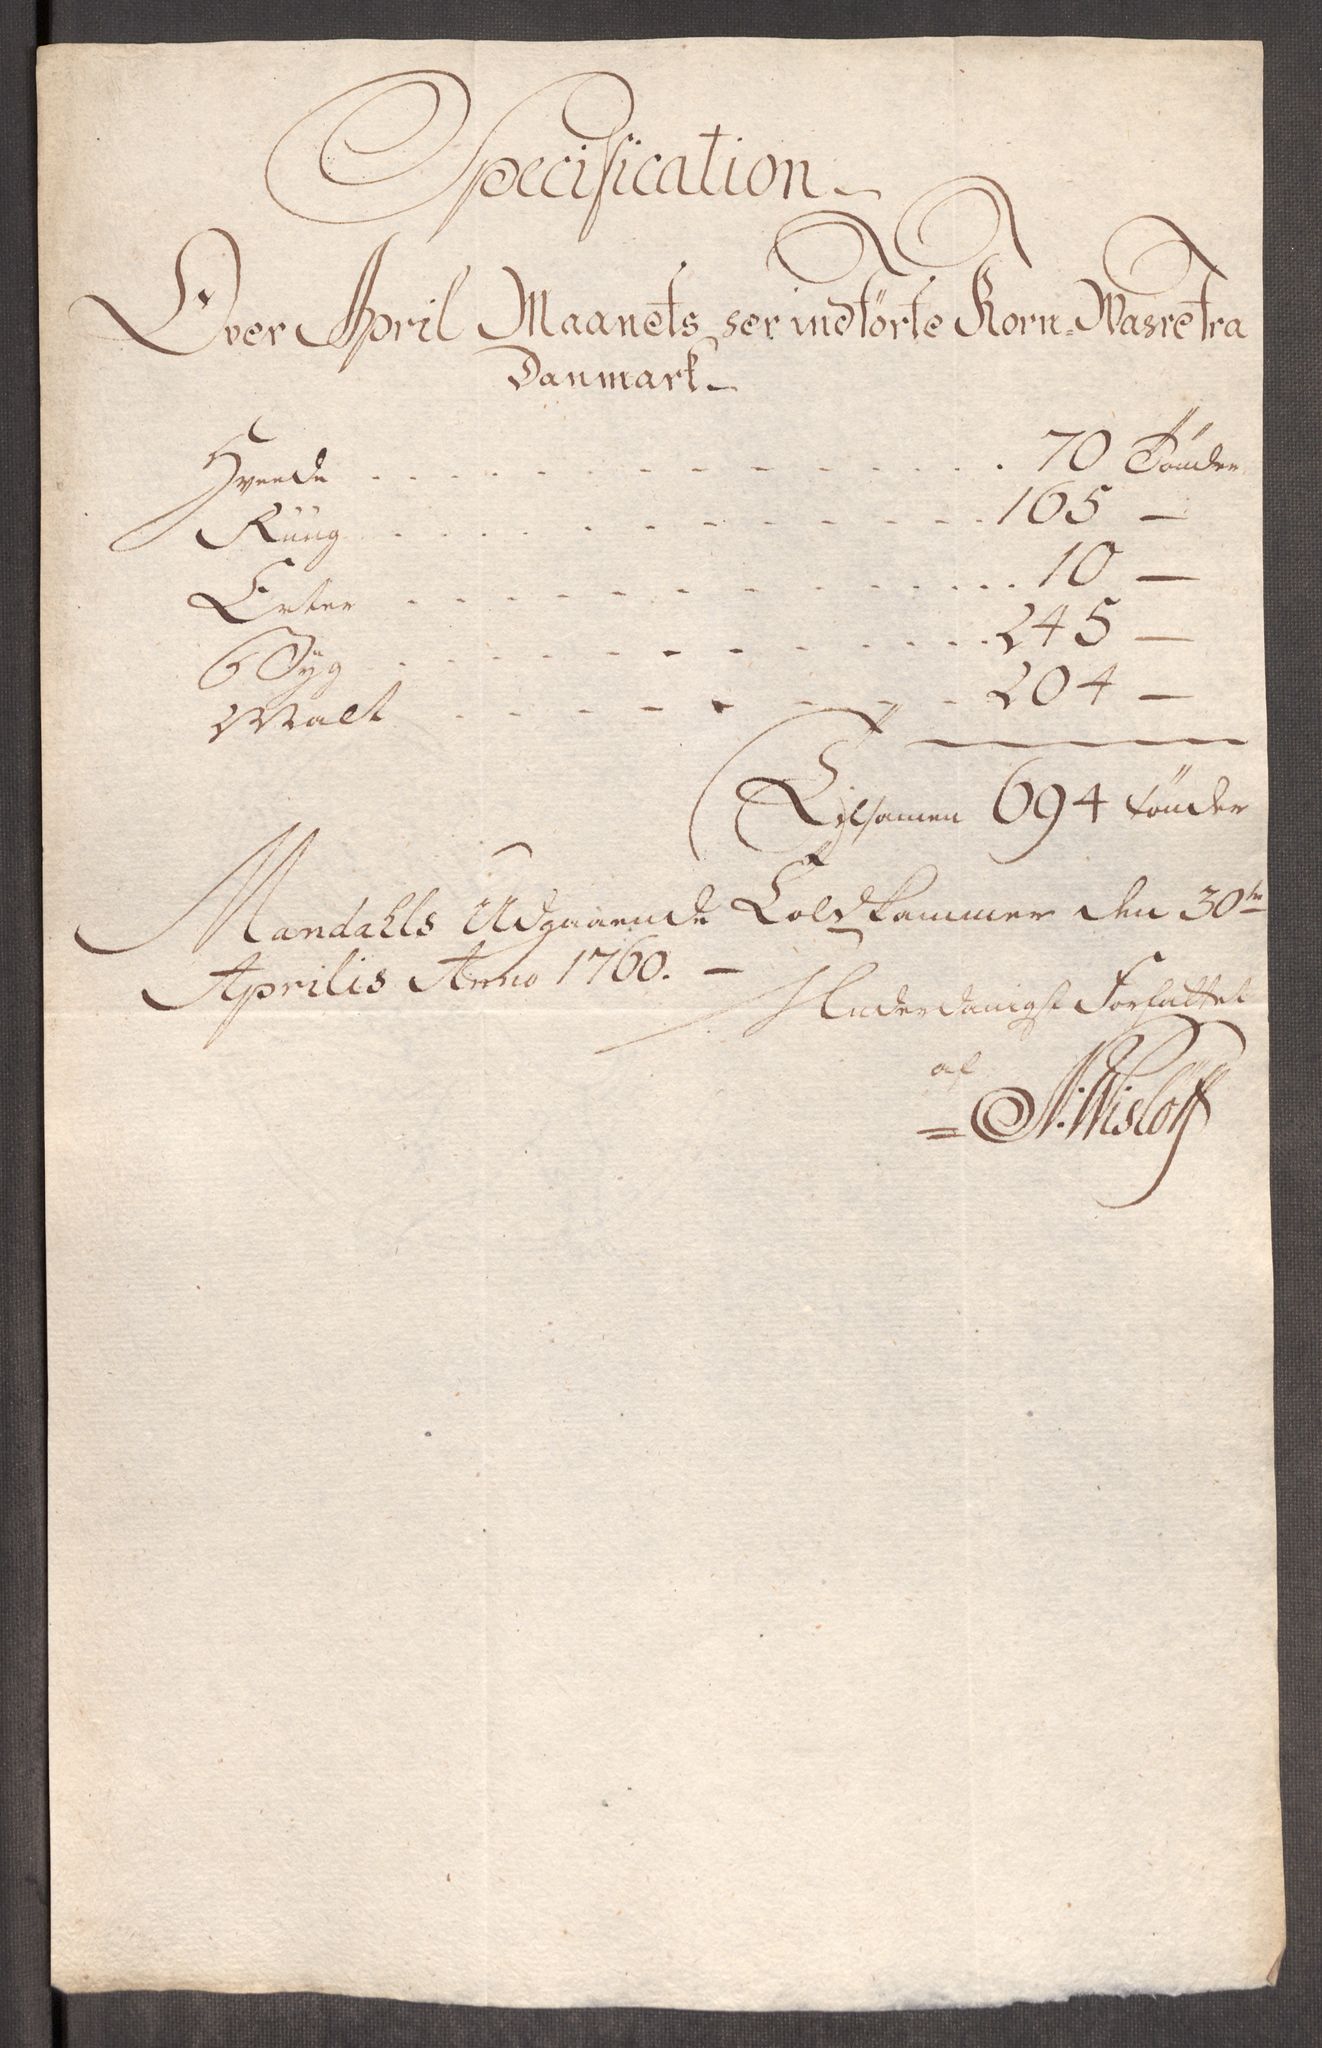 Specification
Over April Maanets her indförte Korn-Wasre fra
Danmark
Hveede . . . . . . . . . . . . 70 Tönder
Rüüg . . . . . . . . . . . . 165 —
Erter . . . . . . . . . . . . 10 —
Byg . . . . . . . . . . . . 245 —
Malt . . . . . . . . . . . . 204 —
Tilsamen 694 tönder
Mandahls Udgaaende Toldkammer den 30te
Aprilis Anno 1760. —
Underdanigst Forfattet
af
= N: Wislöff